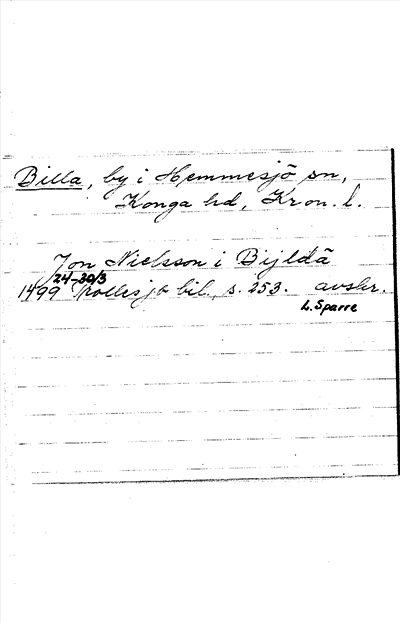 Billa, by i Hemmesjö sn,
Konga hd, Kron. l.
Jon Nielsson i Bijldä
24-30/3
1499 Trollesjö bil., s. 253. avskr.
L. Sparre